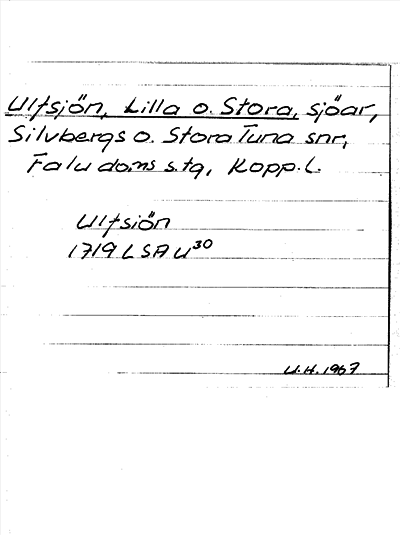 Ulfsjön, Lilla o. Stora, sjöar,
Silvbergs o. Stora Tuna snr,
Falu doms.tg, Kopp. l.
Ulfsiön
1719 LSA U30
U.H. 1967